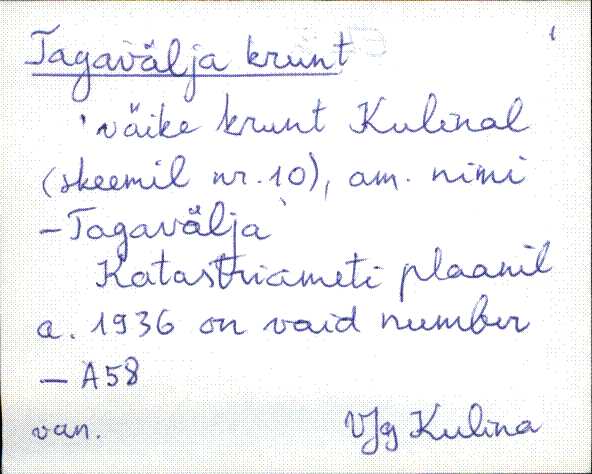 Tagavälja krunt
'väike krunt Kulinal
(skeemil nr. 10), am. nimi
– Tagavälja'
Katastriameti plaanil
a. 1936 on vaid number
– A58
van. VJg Kulina